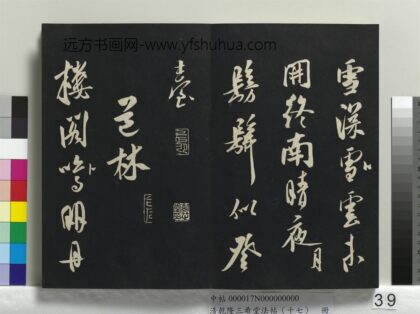 雪深雪雲未
開終南晴夜月
髣髴似登
臺
道林
樓閣鳴明丹
远方书画网-www.yfshuhua.com
中帖 000017N000000000
清乾隆三希堂法帖（十七） 冊
39